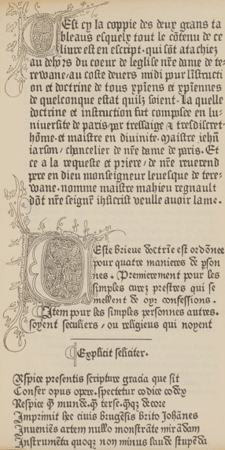 Cest cy la coppie des deux grans ta
bleaus esquely tout le cõtenu de ce
liure est en escript. qui sõt atachiez
au dehors du coeur de leglise nr̃e dame de te-
rewane. au coste deuers midi pour lĩstructi
on et doctrine de tous xp̃iens et xp̃iennes
de quelconque estat quilz soient. La quelle
doctrine et instruction fut composee en lu-
niuersite de paris. par tressaige ⁊ tresdiscret
hõme. et maistre en diuinite. maistre iehã
iarson. chancelier de nr̃e dame de paris. Et
ce a la requeste et priere. de nr̃e reuerend
pere en dieu monseigneur leuesque de tere-
wane. nomme maistre mahieu regnault
dõt nr̃e seignr̃ veulle auoir lame.
Ceste brieue doctrĩe est ordõnee
pour quatre manieres de p̱son
nes. Premierement pour les
simples curez prestres qui se
mellent de oyr confessions.
Item pour les simples personnes autres.
soyent seculiers / ou religieus qui noyent
Explicit feliciter.
Aspice presentis scripture gracia que sit
Confer opus opere. spectetur codice codex
Respice q̃ munde. q̃ terse. q̃ decore
Imprimit hec ciuis brugẽsis brito Johãnes
Inueniẽs artem nullo monstrãte mirãdam
Instrumẽta quoqȝ non minus laude stupẽda